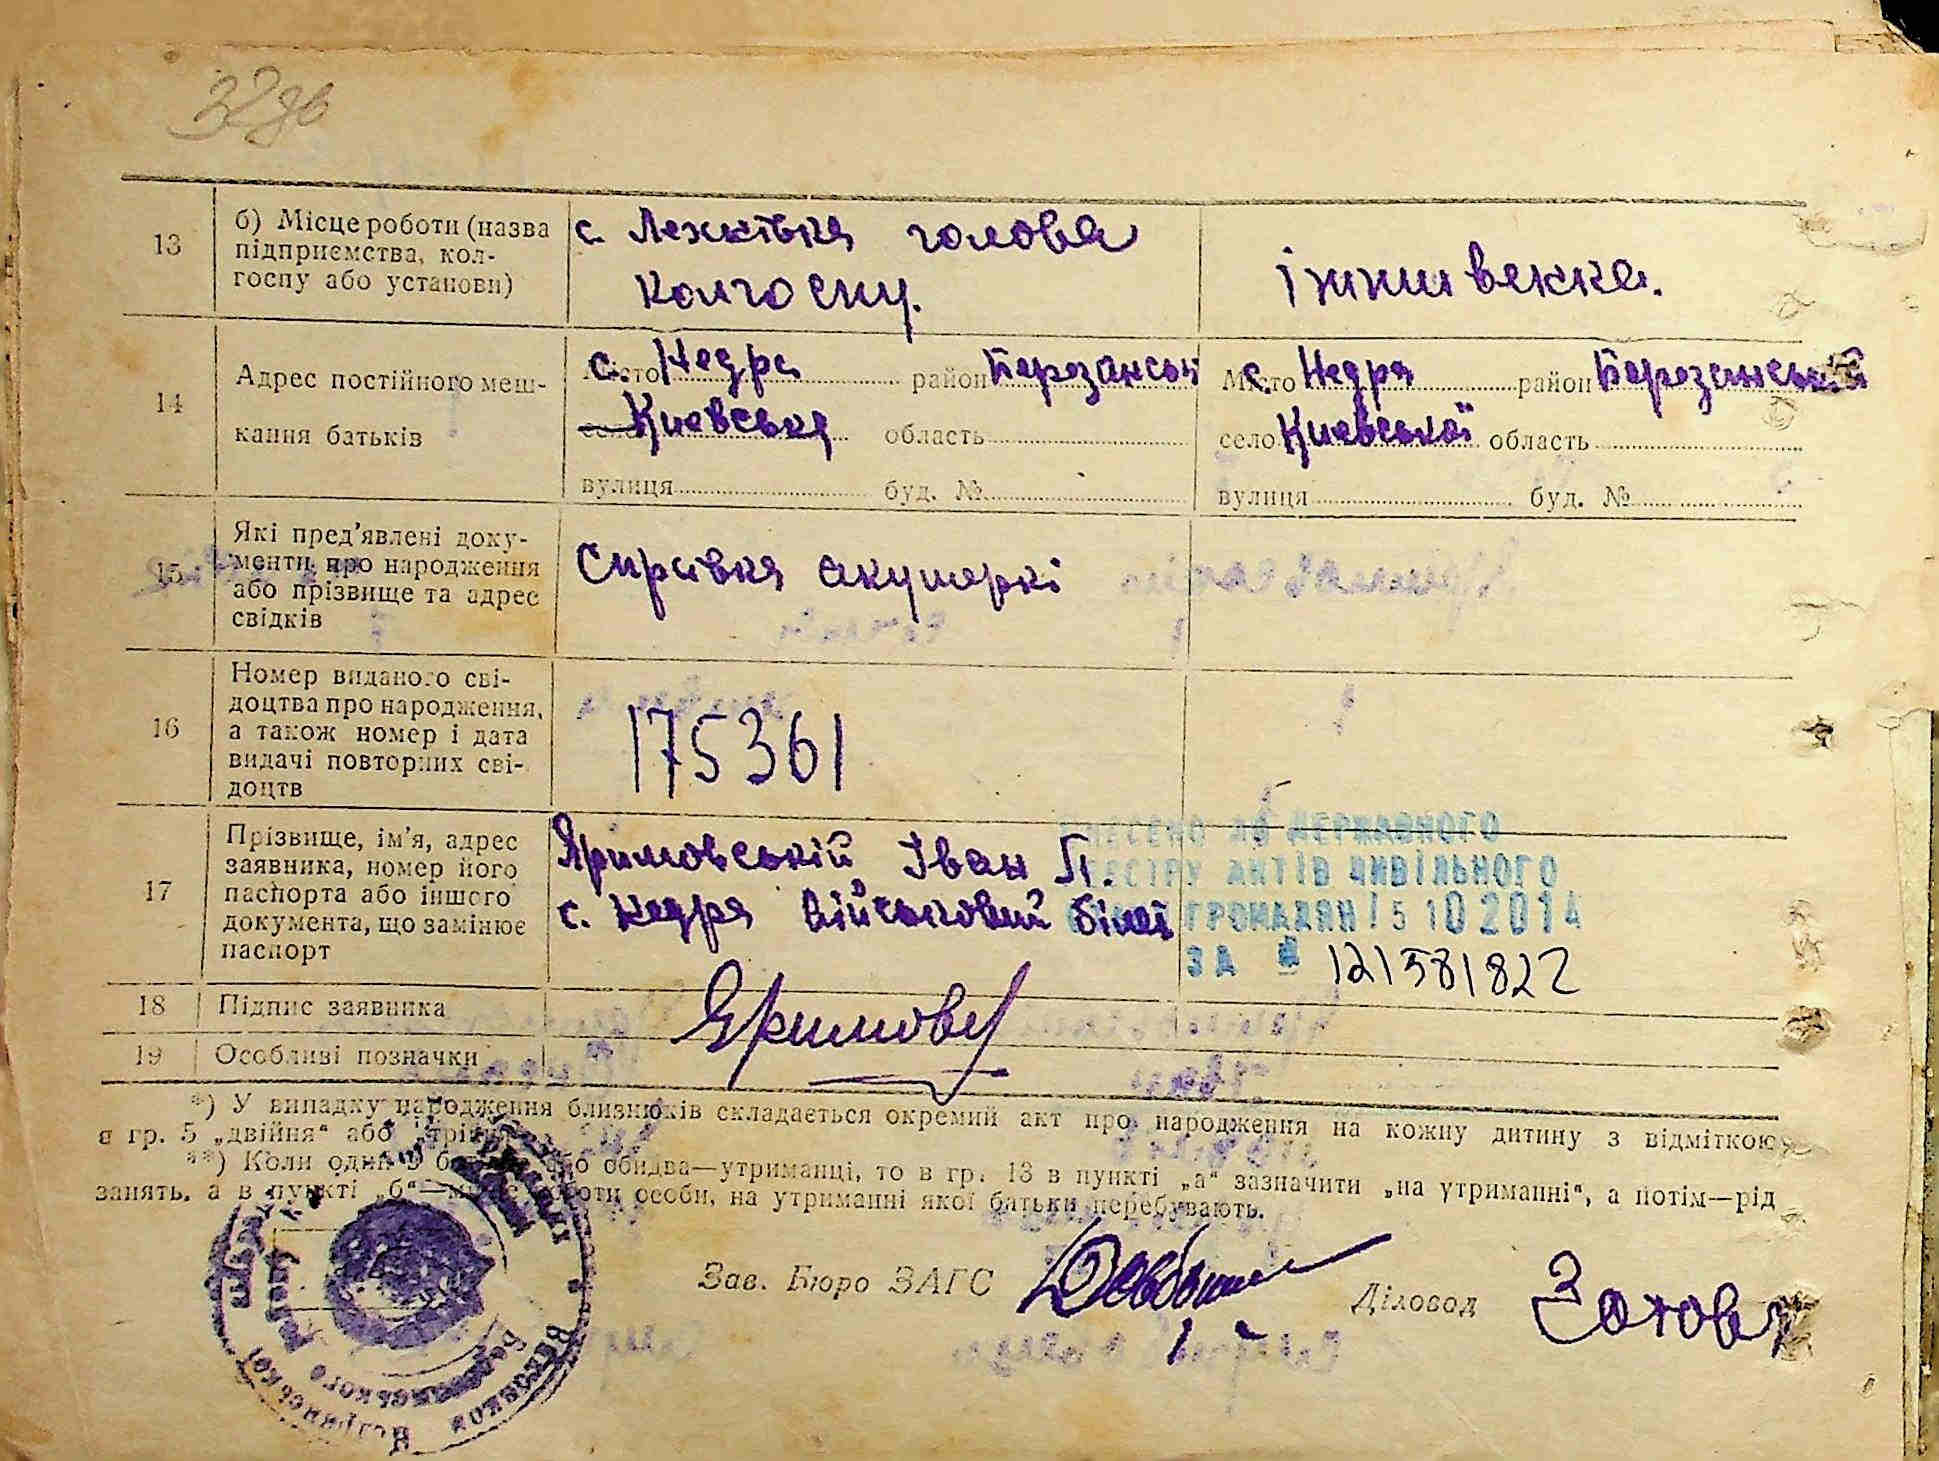 32зв
13
б) Місце роботи (назва
підприємства, кол-
госпу або установи)
с. Лехнівка голова
колгоспу.
14
Адрес постійного меш-
кання батьків
с. Недра район Березанськ
Киевська область
вулиця буд. №
Місто Недра район Березанський
село Киевської область
вулиця буд. №
15
Які пред'явлені доку-
менти про народження
або прізвище та адрес
свідків
Справка акушеркі
16
Номер виданого сві-
доцтва про народження,
а також номер і дата
видачі повторних сві-
доцтв
175361
17
Прізвище, ім'я, адрес
заявника, номер його
паспорта або іншого
документа, що замінює
паспорт
Яримовській Іван П.
с. Недра військовий білет
ВНЕСЕНО ДО ДЕРЖАВНОГО
РЕЄСТРУ АКТІВ ЦИВІЛЬНОГО
ГРОМАДЯН 15 10 2014
ЗА № 121581822
18
Підпис заявника
Яримовс
19
Особливі позначки
*) У випадку народження близнюків складається окремий акт про народження на кожну дитину з відміткою
в гр. 5 „двійня“ або
**) Коли один з або обидва—утриманці, то в гр. 13 в пункті „а“ зазначити „на утриманні“, а потім—рід
занять, а в пункті „б“—місце роботи особи, на утриманні якої батьки перебувають.
Зав. Бюро ЗАГС
Діловод Зотова